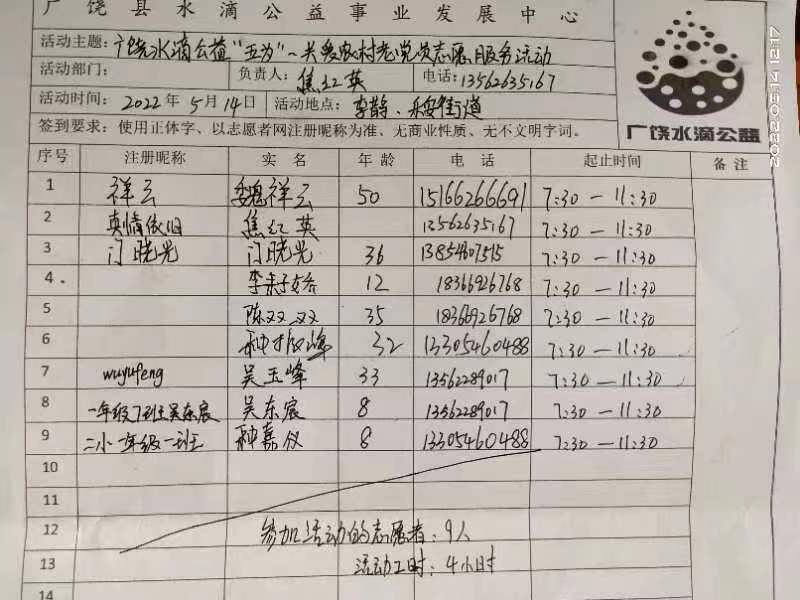 广饶县水滴公益事业发展中心
活动主题：广饶水滴公益“五为”—关爱农村老党员志愿服务活动
活动部门： 负责人：焦红英 电话：13562635167
活动时间：2022年5月14日 活动地点：李鹊、乐安街道
签到要求：使用正体字、以志愿者网注册昵称为准、无商业性质、无不文明字词。
广饶水滴公益
序号 注册昵称 实名 年龄 电话 起止时间 备注
1 祥云 魏祥云 50 15166266691 7:30—11:30
2 真情依旧 焦红英 13562635167 7:30—11:30
3 门晓光 门晓光 36 13854607515 7:30—11:30
4 12 18366926768 7:30—11:30
5 陈双双 35 18366926768 7:30—11:30
6 32 13305460488 7:30—11:30
7 wuyufeng 吴玉峰 33 13562289017 7:30—11:30
8 一年级7班吴东宸 吴东宸 8 13562289017 7:30—11:30
9 二小一年级一班 8 13305460488 7:30—11:30
10
11
12 参加活动的志愿者：9人
13 活动工时：4小时
14